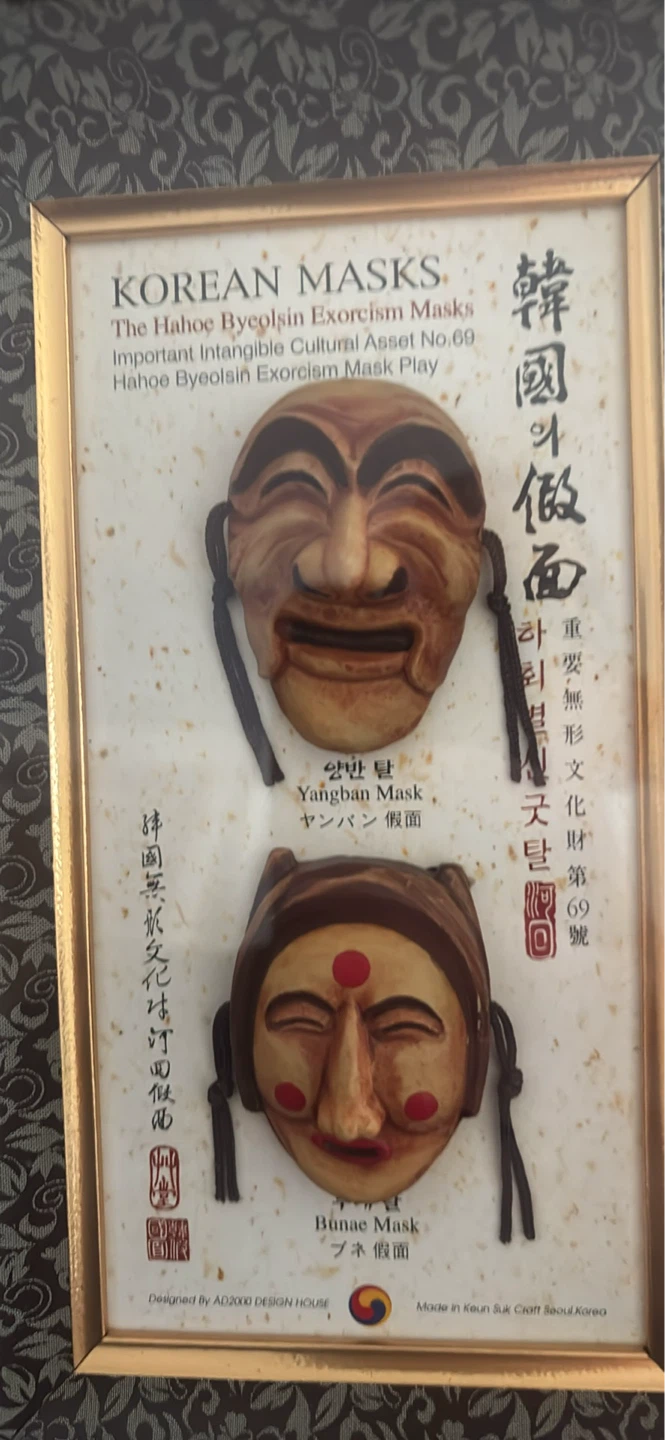 KOREAN MASKS
The Hahoe Byeolsin Exorcism Masks
Important Intangible Cultural Asset No.69
Hahoe Byeolsin Exorcism Mask Play
韓國의 假面
하회별신굿탈
重要無形文化財第69號
河回
양반 탈
Yangban Mask
ヤンバン 假面
韓國無形文化財河回假面
Bunae Mask
ブネ 假面
Designed By AD2000 DESIGN HOUSE
Made in Keun Suk Craft Seoul.Korea